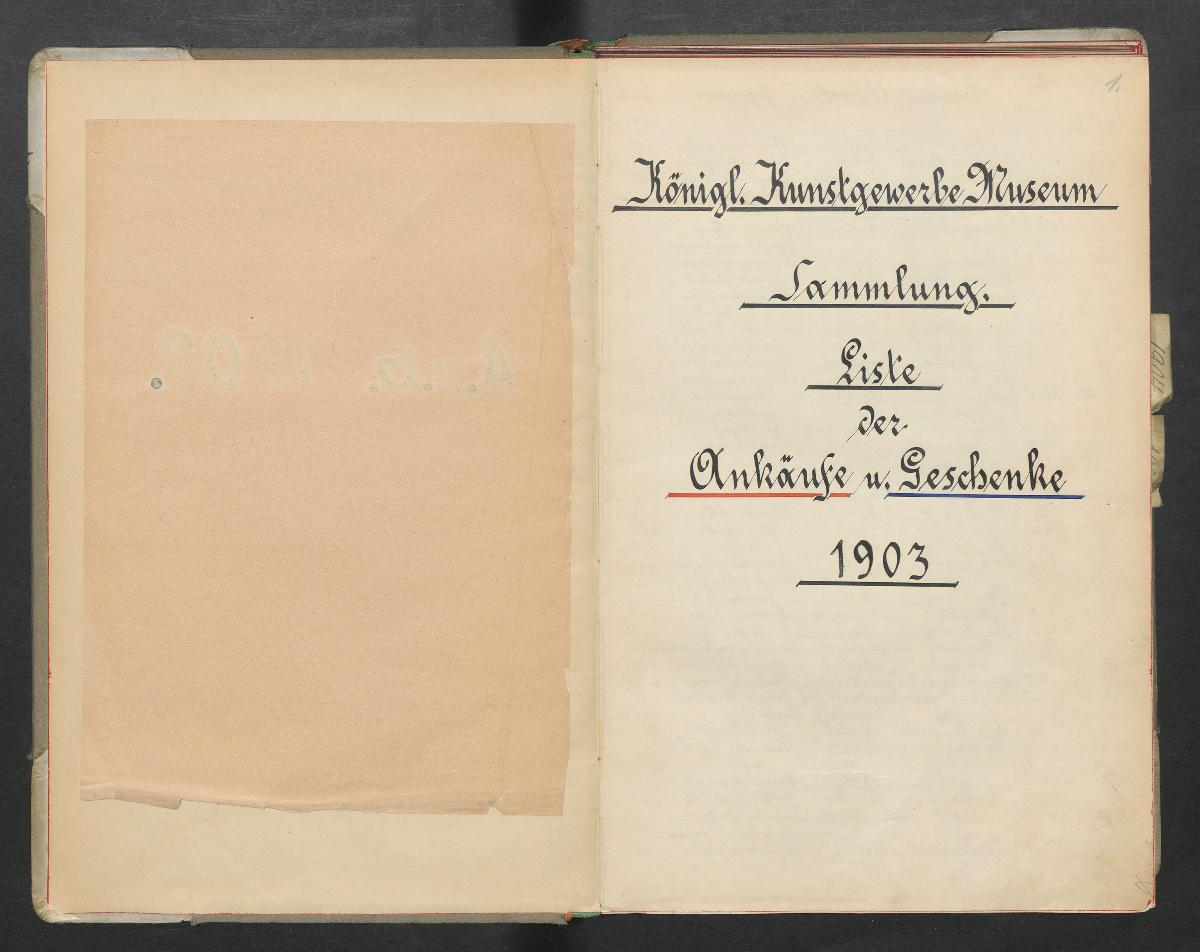 1.
Königl. Kunstgewerbe Museum
Sammlung.
Liste
der
Ankäufe u. Geschenke
1903
1904